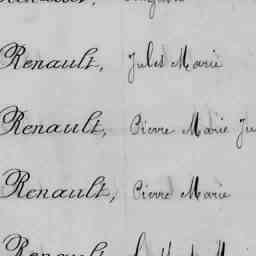 Renault, Jules Marie
Renault, Pierre Marie Ju
Renault, Pierre Marie
Renault